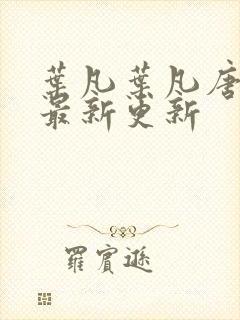 葉凡葉凡唐
最新更新
羅賓遜